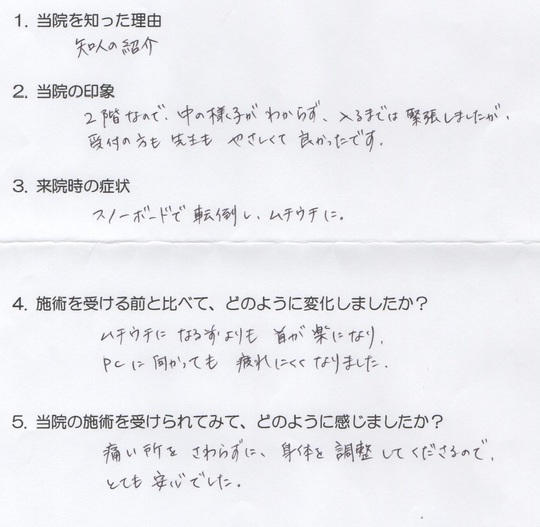 1. 当院を知った理由
知人の紹介
2. 当院の印象
2階なので、中の様子がわからず、入るまでは緊張しましたが、
受付の方も先生もやさしくて良かったです。
3. 来院時の症状
スノーボードで転倒し、ムチウチに。
4. 施術を受ける前と比べて、どのように変化しましたか？
ムチウチになる前よりも首が楽になり、
PCに向かっても疲れにくくなりました.
5. 当院の施術を受けられてみて、どのように感じましたか？
痛い所をさわらずに、身体を調整してくださるので、
とても安心でした。